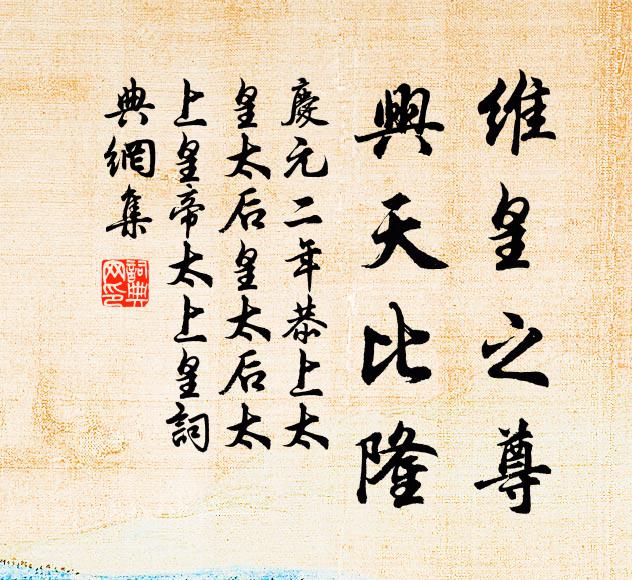 維皇之尊
興天比隆
慶元二年恭上太
皇太后皇太后太
上皇帝太上皇詞
典網集
詞典網印